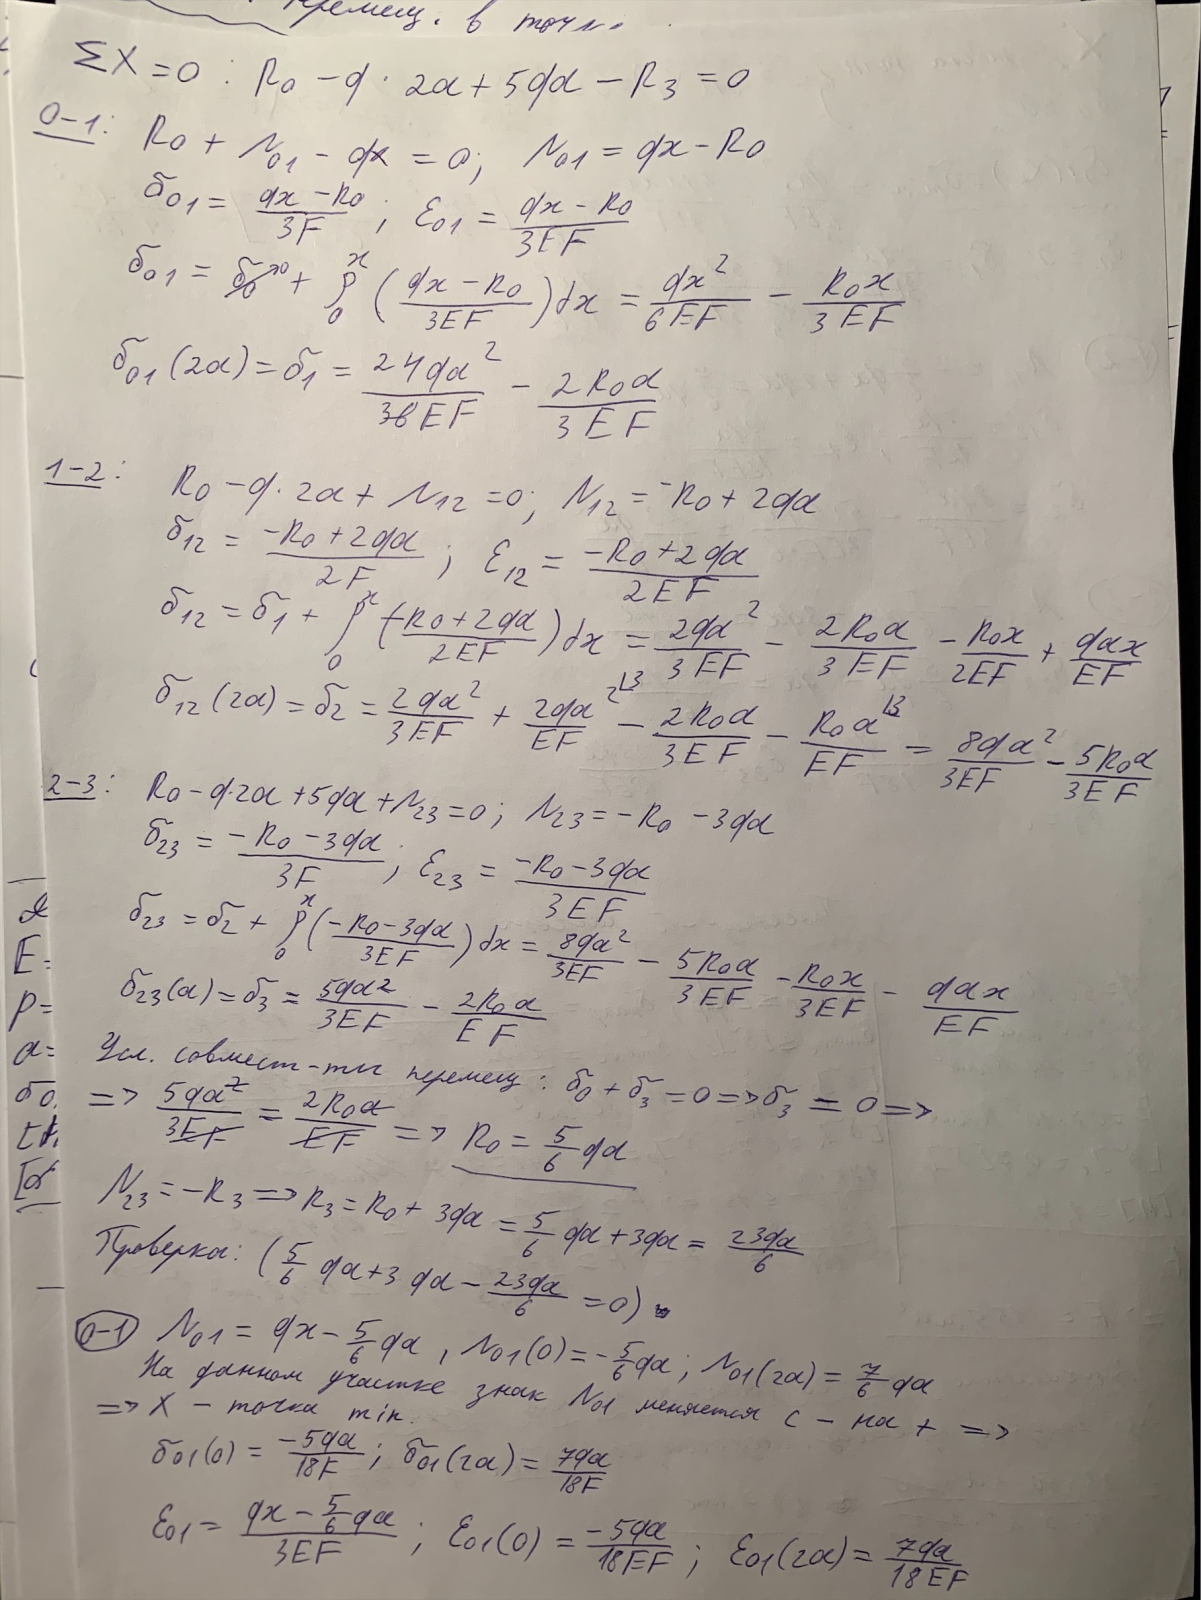 перемещ. в точк
ΣX = 0 : R₀ − q · 2a + 5qa − R₃ = 0
0−1: R₀ + N₀₁ − qx = 0; N₀₁ = qx − R₀
σ₀₁ = (qx − R₀)/3F ; ε₀₁ = (qx − R₀)/3EF
δ₀₁ = δ₀ + ∫₀ˣ ((qx − R₀)/3EF) dx = qx²/6EF − R₀x/3EF
δ₀₁(2a) = δ₁ = 24qa²/36EF − 2R₀a/3EF
1−2: R₀ − q · 2a + N₁₂ = 0; N₁₂ = −R₀ + 2qa
σ₁₂ = (−R₀ + 2qa)/2F ; ε₁₂ = (−R₀ + 2qa)/2EF
δ₁₂ = δ₁ + ∫₀ˣ ((−R₀ + 2qa)/2EF) dx = 2qa²/3EF − 2R₀a/3EF − R₀x/2EF + qax/EF
δ₁₂(2a) = δ₂ = 2qa²/3EF + 2qa²/EF ⌊³ − 2R₀a/3EF − R₀a/EF ⌊³ = 8qa²/3EF − 5R₀a/3EF
2−3: R₀ − q·2a + 5qa + N₂₃ = 0; N₂₃ = −R₀ − 3qa
σ₂₃ = (−R₀ − 3qa)/3F ; ε₂₃ = (−R₀ − 3qa)/3EF
δ₂₃ = δ₂ + ∫₀ˣ ((−R₀ − 3qa)/3EF) dx = 8qa²/3EF − 5R₀a/3EF − R₀x/3EF − qax/EF
δ₂₃(a) = δ₃ = 5qa²/3EF − 2R₀a/EF
Усл. совмест-ти перемещ: δ₀ + δ₃ = 0 => δ₃ = 0 =>
=> 5qa²/3EF = 2R₀a/EF => R₀ = 5/6 qa
N₂₃ = −R₃ => R₃ = R₀ + 3qa = 5/6 qa + 3qa = 23qa/6
Проверка: (5/6 qa + 3qa − 23qa/6 = 0)
0−1 N₀₁ = qx − 5/6 qa , N₀₁(0) = −5/6 qa ; N₀₁(2a) = 7/6 qa
На данном участке знак N₀₁ меняется с − на + =>
=> X − точка min.
σ₀₁(0) = −5qa/18F ; σ₀₁(2a) = 7qa/18F
ε₀₁ = (qx − 5/6 qa)/3EF ; ε₀₁(0) = −5qa/18EF ; ε₀₁(2a) = 7qa/18EF
E=
P=
a=